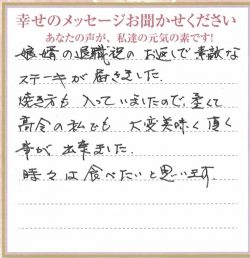 幸せのメッセージお聞かせください
あなたの声が、私達の元気の素です!
娘婿の退職祝のお返しで素敵な
ステーキが届きました
焼き方も入っていましたので、柔くて
高令の私でも大変美味く頂く
事が出来ました.
時々は食べたいと思います.